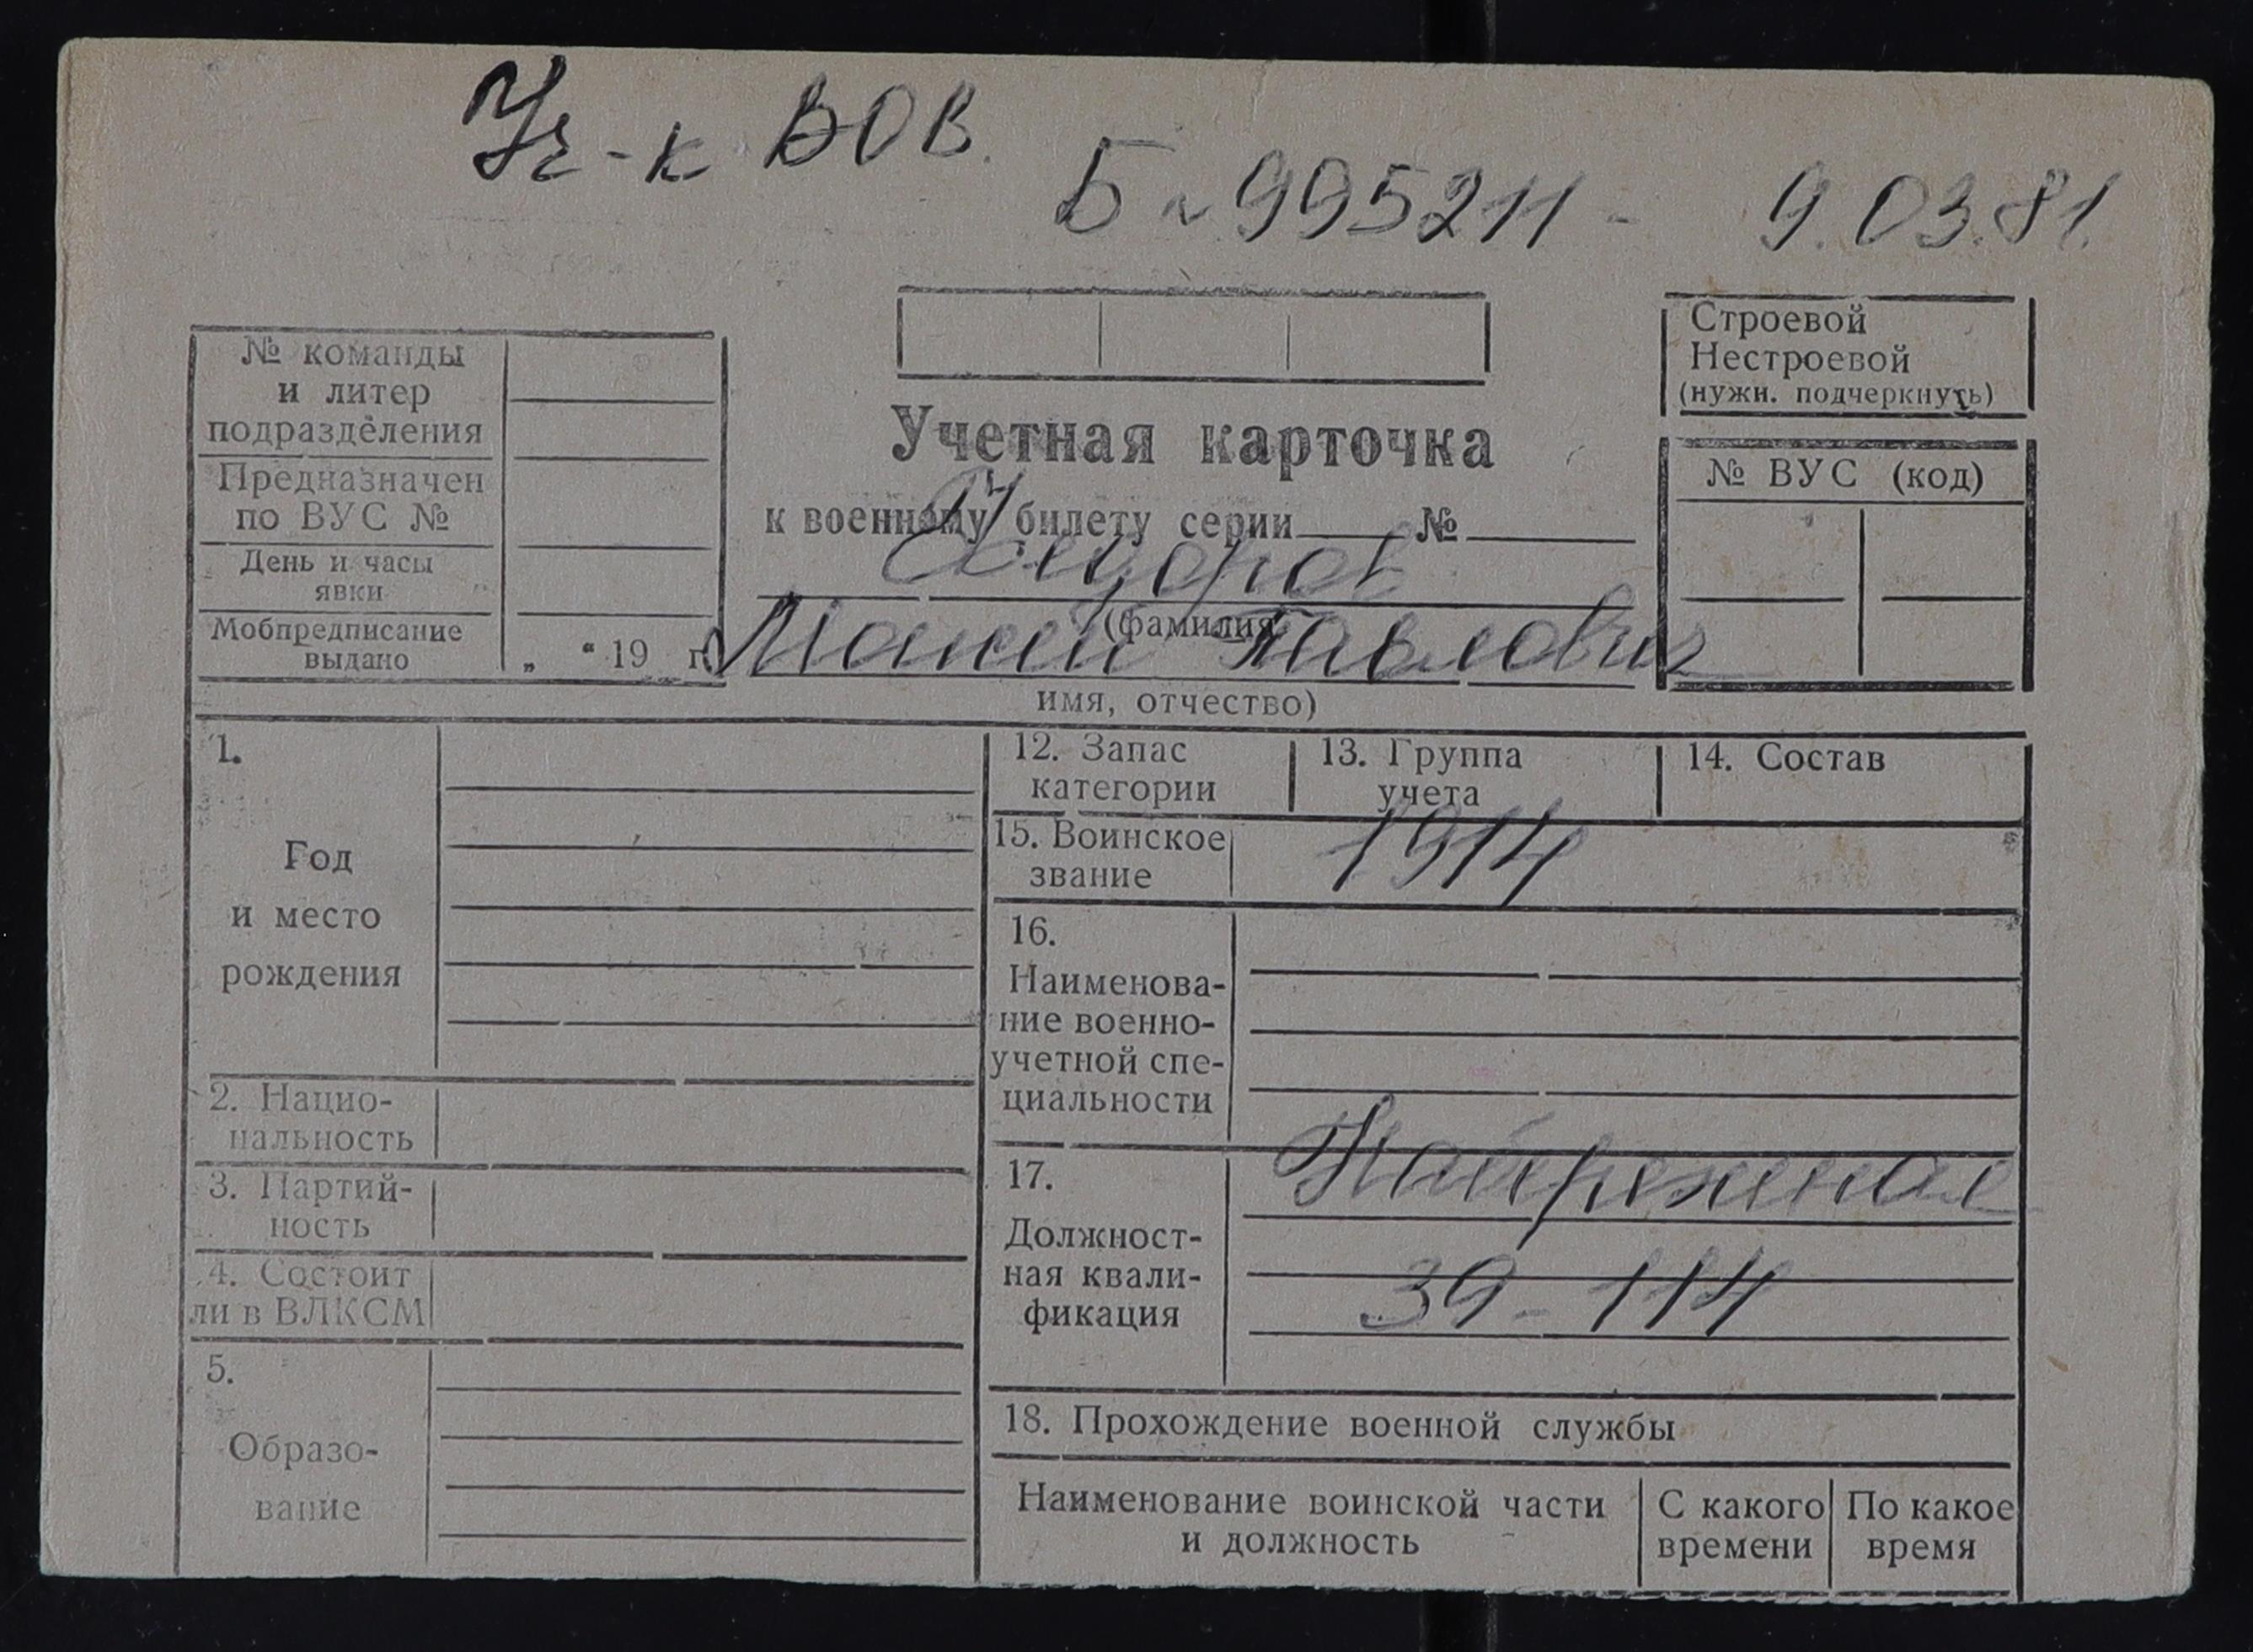 Уч-к ВОВ.
Б № 995211 - 9.03.81.
Строевой
Нестроевой
(нужн. подчеркнуть)
№ команды
и литер
подразделения
Предназначен
по ВУС №
День и часы
явки
Мобпредписание
выдано
„ “ 19 г.
Учетная карточка
к военному билету серии №
(фамилия,
Павлович
имя, отчество)
№ ВУС (код)
1.
Год
и место
рождения
2. Нацио-
нальность
3. Партий-
ность
4. Состоит
ли в ВЛКСМ
5.
Образо-
вание
12. Запас
категории
13. Группа
учета
14. Состав
15. Воинское
звание
1914
16.
Наименова-
ние военно-
учетной спе-
циальности
17.
Должност-
ная квали-
фикация
Набережная
39-114
18. Прохождение военной службы
Наименование воинской части
и должность
С какого
времени
По какое
время